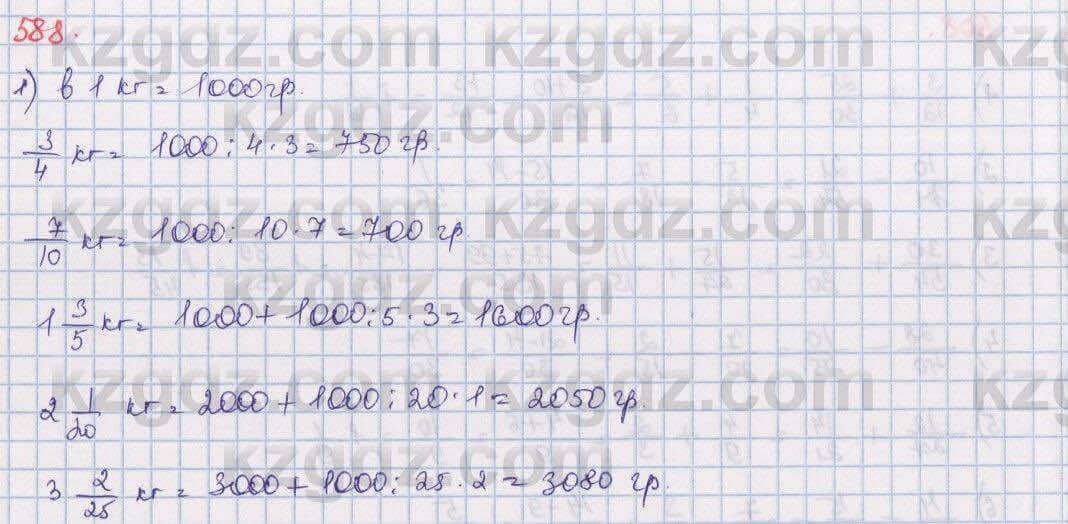 588.
1) в 1 кг = 1000 гр.
3/4 кг = 1000 : 4 · 3 = 750 гр.
7/10 кг = 1000 : 10 · 7 = 700 гр
1 3/5 кг = 1000 + 1000 : 5 · 3 = 1600 гр.
2 1/20 кг = 2000 + 1000 : 20 · 1 = 2050 гр.
3 2/25 кг = 3000 + 1000 : 25 · 2 = 3080 гр.
kzgdz.com kzgdz.com kz
kzgdz.com
kzgdz.com kzgdz.com kz
kzgdz.com
kzgdz.com kzgdz.com kz
kzgdz.com